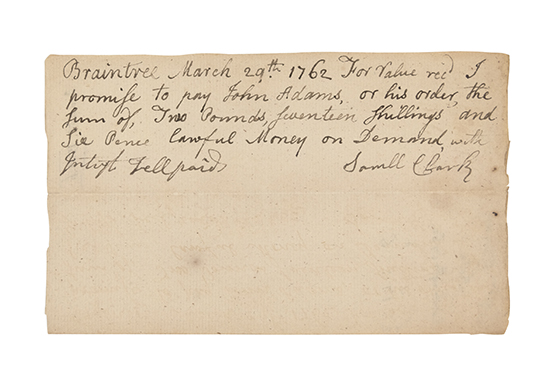 Braintree March 29th 1762 For Value recd I
promise to pay John Adams, or his order, the
Sum of, Two Pounds, seventeen Shillings and
Six Pence Lawful Money on Demand, with
Intrst Tell paid Samll Clark